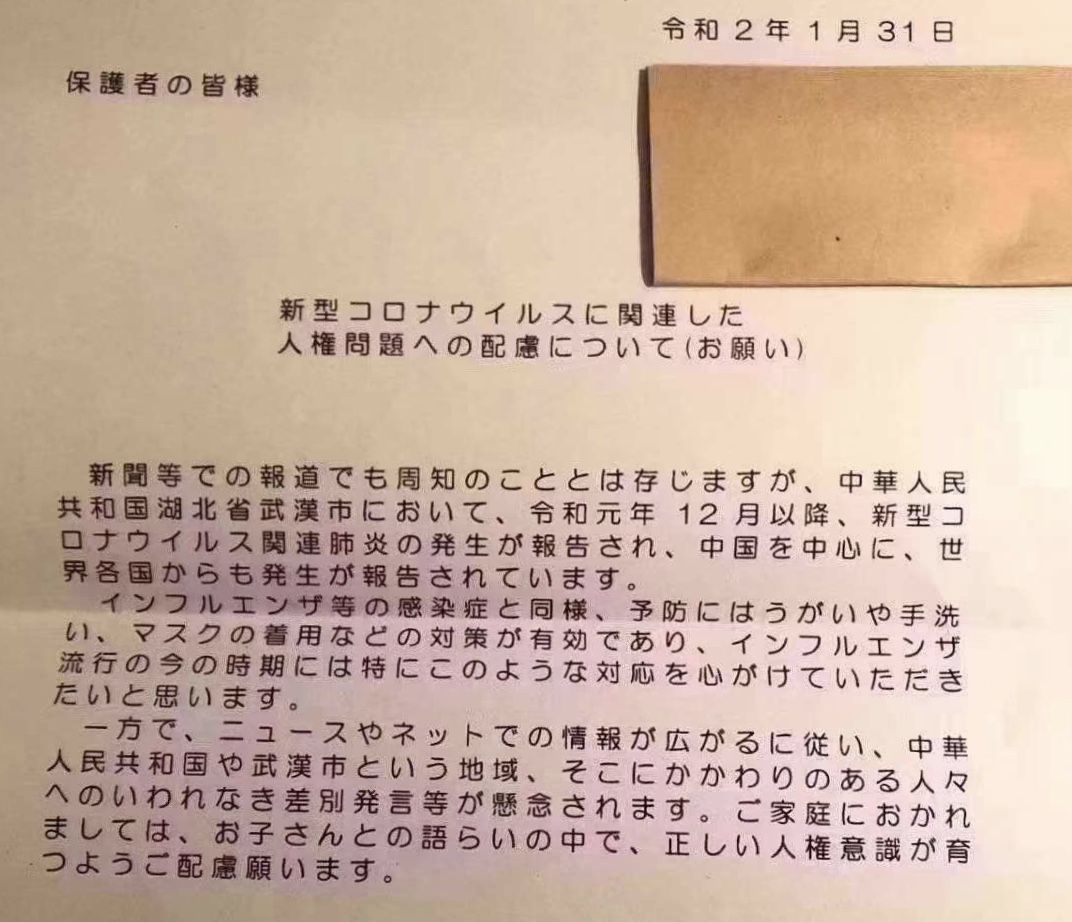 令和2年1月31日
保護者の皆様
新型コロナウイルスに関連した
人権問題への配慮について(お願い)
新聞等での報道でも周知のこととは存じますが、中華人民
共和国湖北省武漢市において、令和元年 12 月以降、新型コ
ロナウイルス関連肺炎の発生が報告され、中国を中心に、世
界各国からも発生が報告されています。
インフルエンザ等の感染症と同様、予防にはうがいや手洗
い、マスクの着用などの対策が有効であり、インフルエンザ
流行の今の時期には特にこのような対応を心がけていただき
たいと思います。
一方で、ニュースやネットでの情報が広がるに従い、中華
人民共和国や武漢市という地域、そこにかかわりのある人々
へのいわれなき差別発言等が懸念されます。ご家庭におかれ
ましては、お子さんとの語らいの中で、正しい人権意識が育
つようご配慮願います。